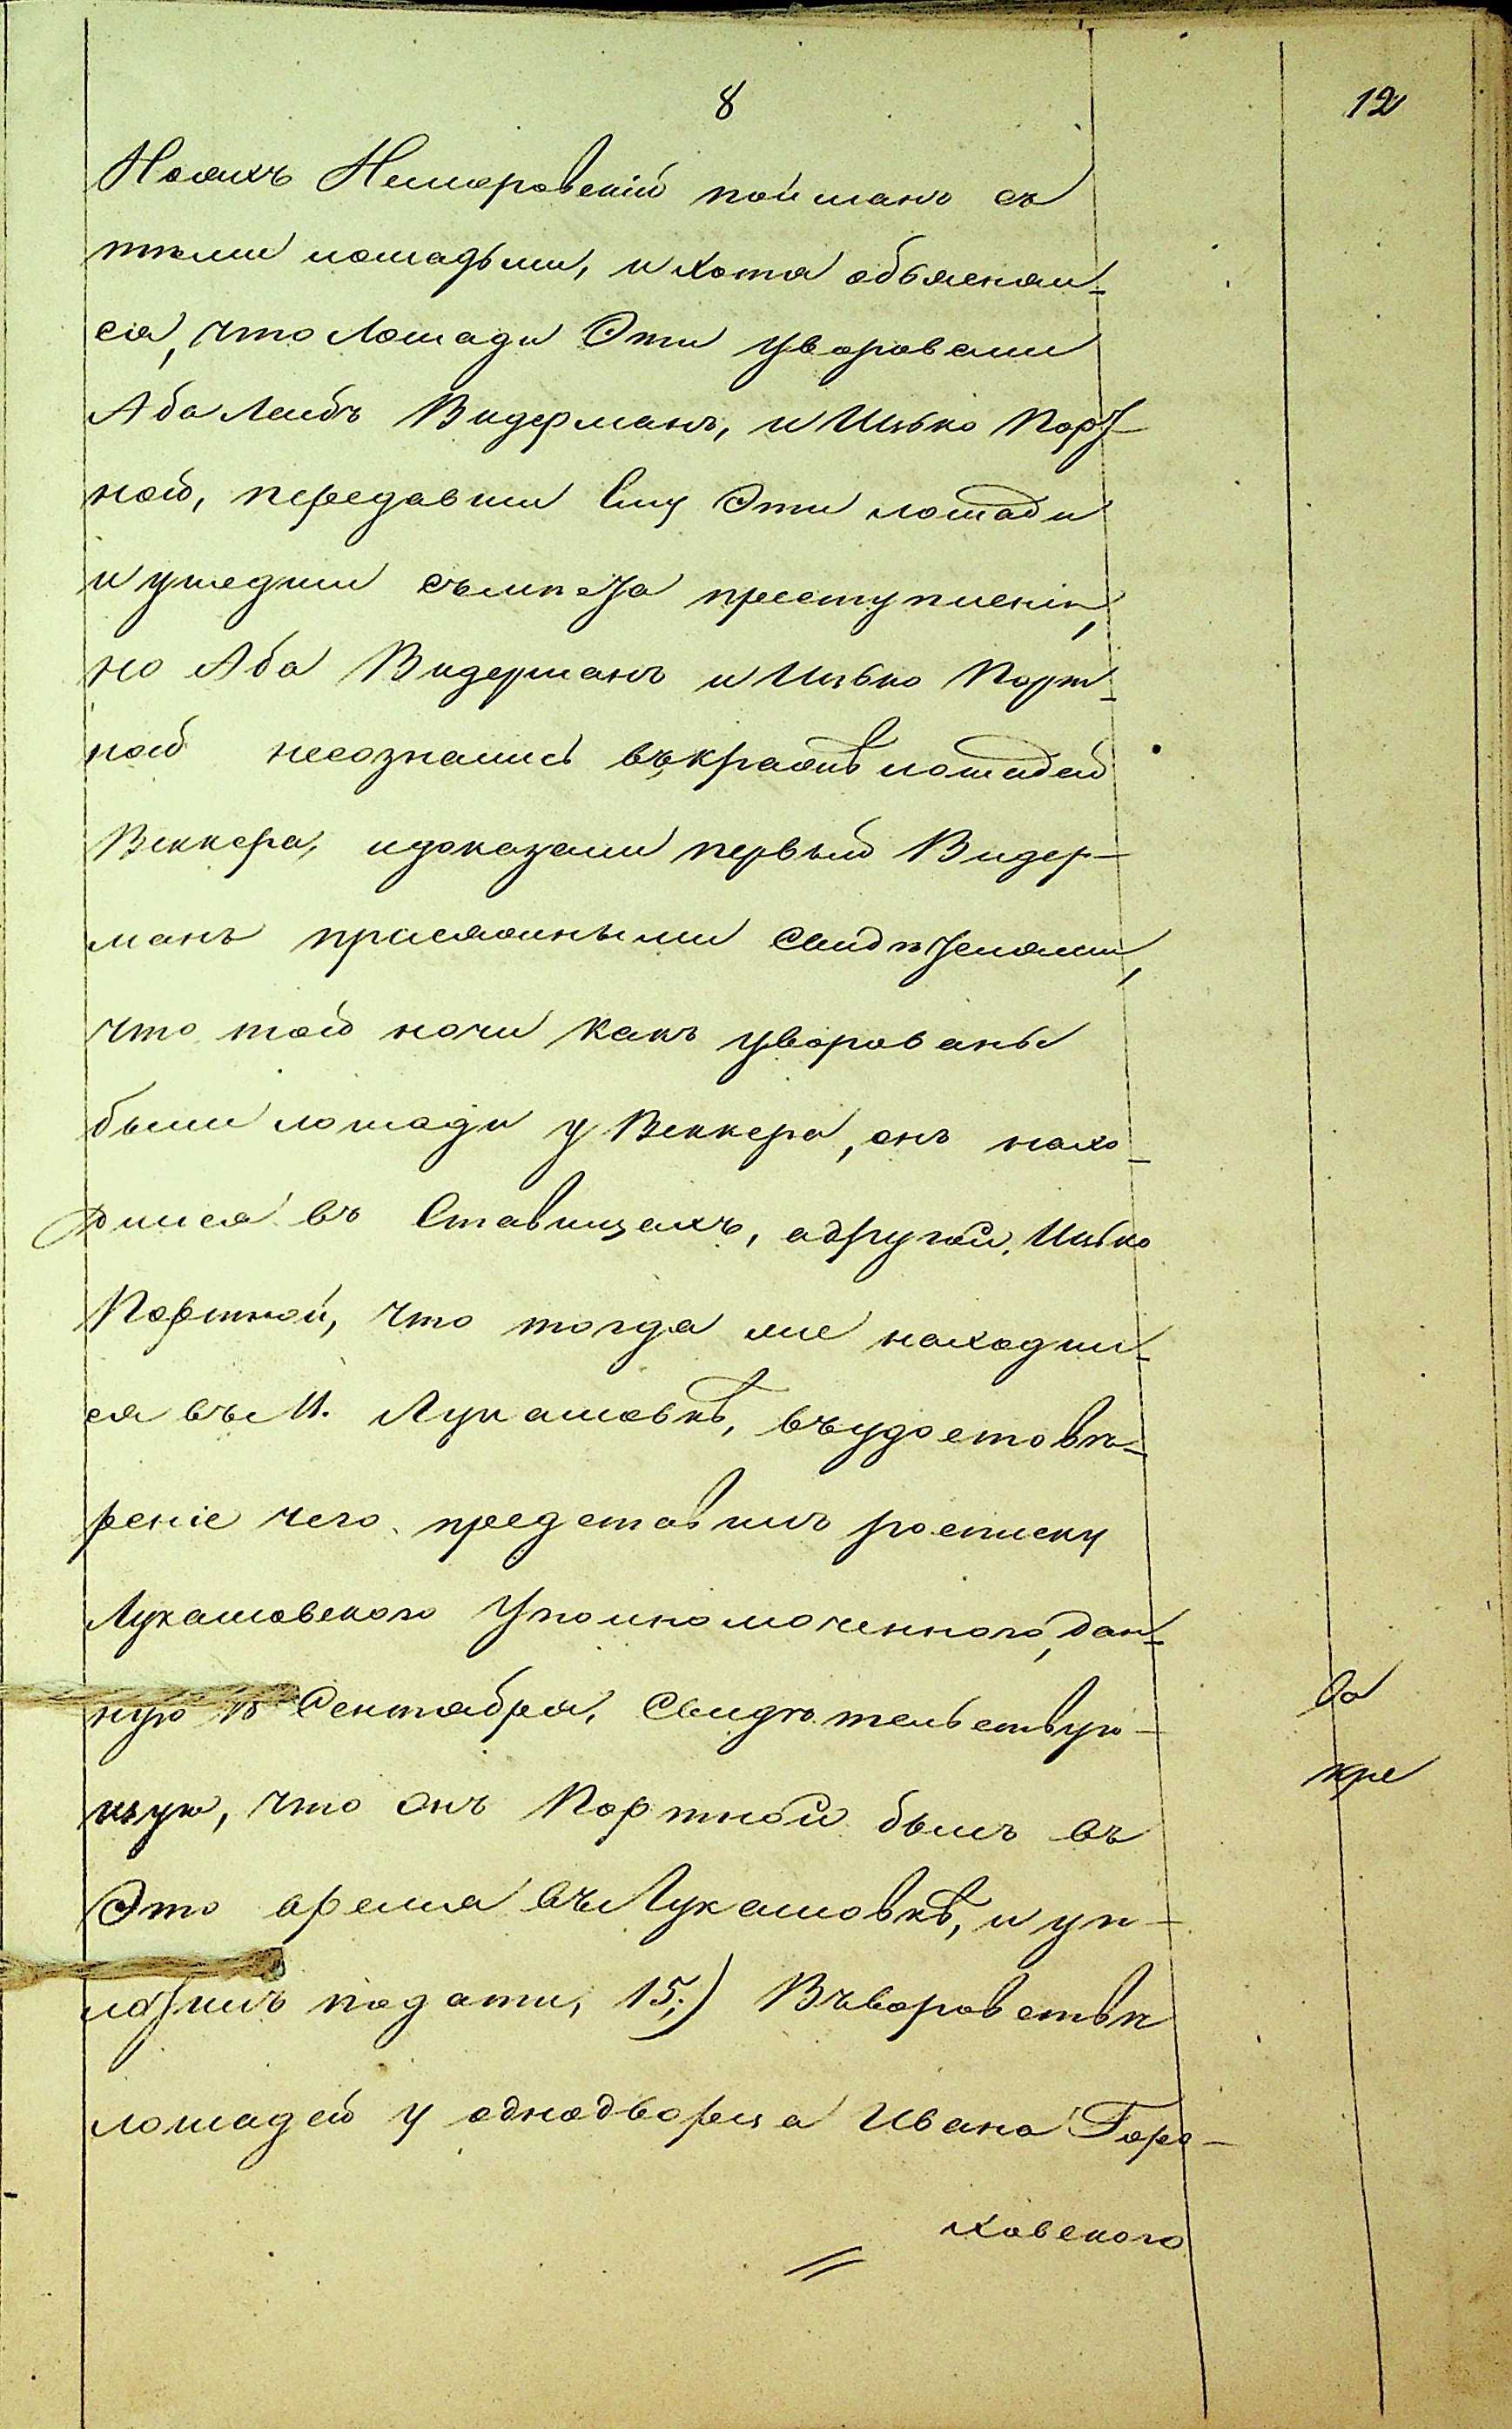 8
12
Немеровскій пойманъ съ
тѣми лошадьми, и хотя объяснял-
ся, что лошади Эти уворовали
Аба Лейбъ Видерманъ, и Ицько Порт-
ной, передавши Ему Эти лошади
и ушедши съ мѣста преступленія,
но Аба Видерманъ и Ицько Порт-
ной несознались въ кражѣ лошадей
Веккера, и доказали первый Видер-
манъ присяжными свидѣтелями,
что той ночи какъ уворованы
были лошади у Веккера, онъ нахо-
дился въ Ставищахъ, а другой, Ицько
Портной, что тогда же находил-
ся въ М. Лукашовкѣ, въ удостовѣ-
реніе чего представилъ росписку
Лукашовского Уполномоченного, дан-
ную Сентября, свидѣтельствую-
щую, что онъ Портной былъ въ
Это время въ Лукашовкѣ, и уп-
лотилъ подати, 15;) Въ воровствѣ
лошадей у однодворца Ивана Горо-
ховского